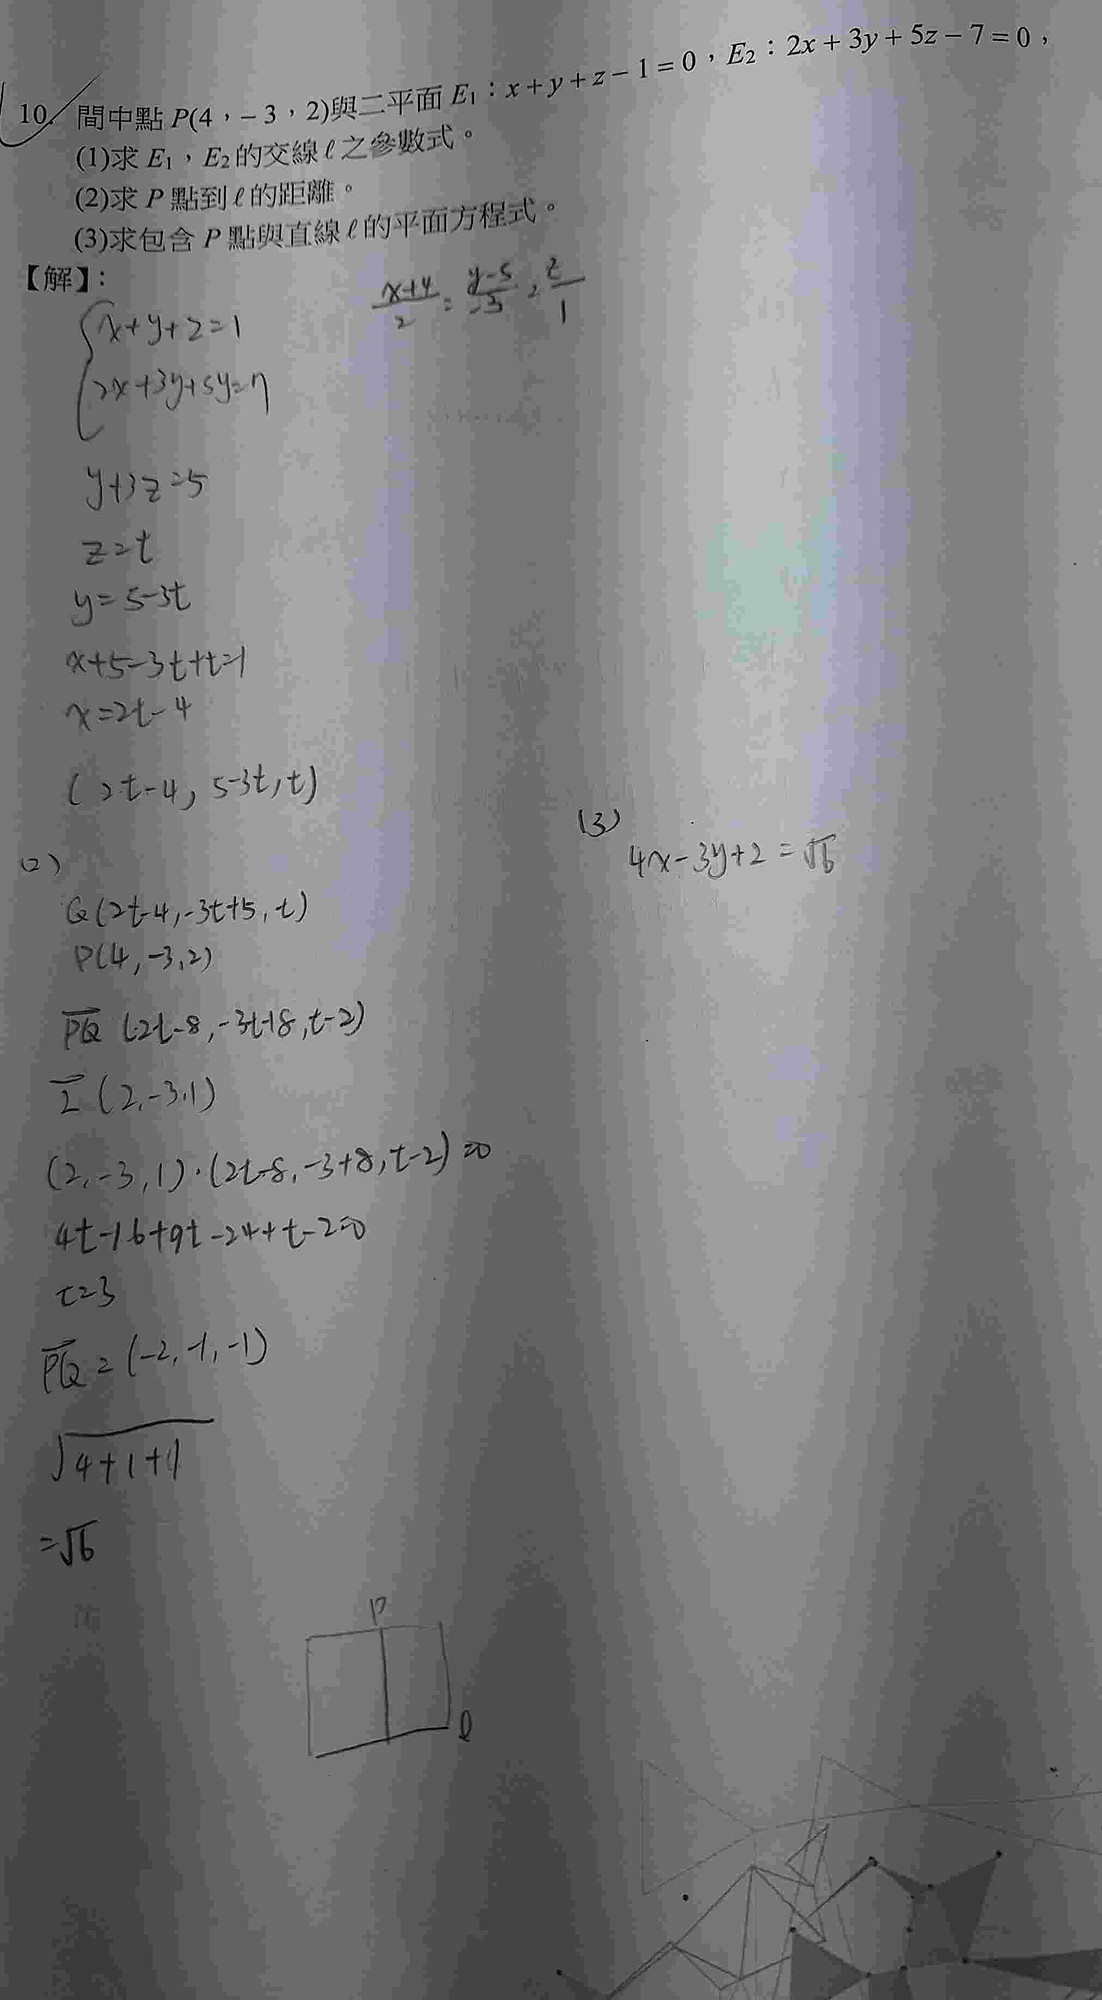 10. 間中點 P(4,-3,2)與二平面 E₁:x+y+z-1=0,E₂:2x+3y+5z-7=0,
(1)求 E₁,E₂的交線 ℓ 之參數式。
(2)求 P 點到 ℓ 的距離。
(3)求包含 P 點與直線 ℓ 的平面方程式。
【解】:
x+y+z=1
2x+3y+5y=7
(x+4)/2 = (y-5)/-3 = z/1
y+3z=5
z=t
y=5-3t
x+5-3t+t=1
x=2t-4
(2t-4, 5-3t, t)
(2)
Q(2t-4, -3t+5, t)
P(4, -3, 2)
PQ (2t-8, -3t+8, t-2)
(2, -3, 1)
(2, -3, 1)·(2t-8, -3+8, t-2)=0
4t-16+9t-24+t-2=0
t=3
PQ = (-2, -1, -1)
√4+1+1
=√6
P
ℓ
(3)
4x-3y+2=√6